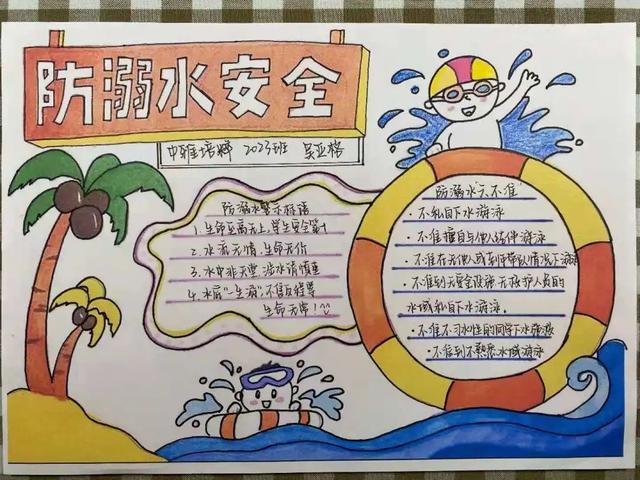 防溺水安全
中雅培粹 2023班 吴亚格
防溺水警示标语
1.生命至高无上,学生安全第一
2.水痕无情.生命无价
3.水中非天堂.涉水请慎重
4.水尽“一生漏”;不售反程票
生命无常!
防溺水“六不准”
·不私自下水游泳
·不准擅自与他人结伴游泳
·不准在无他人或老师带队情况下游泳
·不准到无安全设施无救护人员的
水域私自下水游泳.
·不准不习水性的同学下水施救
·不准到不熟悉水域游泳